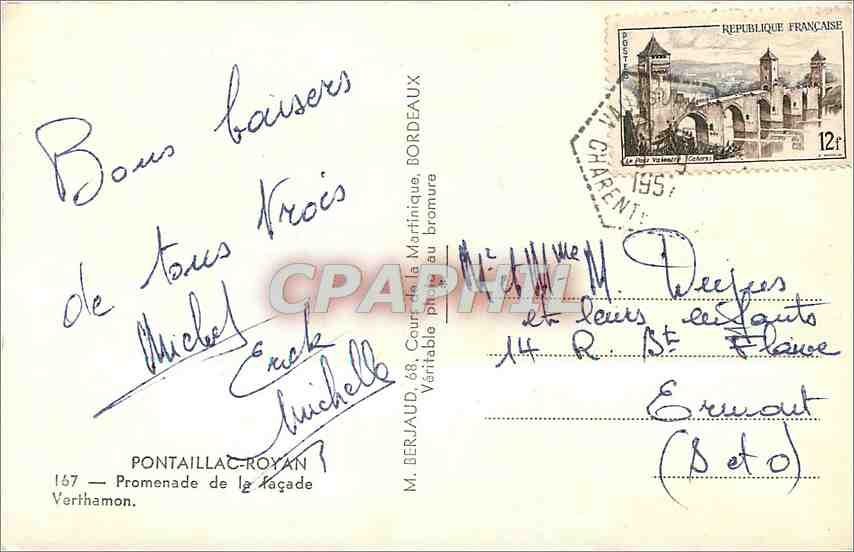 Bons baisers
de tous trois
Michel
Erick
Michelle
PONTAILLAC-ROYAN
167 — Promenade de la façade
Verthamon.
M. BERJAUD, 68, Cours de la Martinique, BORDEAUX
Véritable photo au bromure
REPUBLIQUE FRANÇAISE
POSTES
Le Pont Valentré (Cahors)
12f
CHARENTE
1957
CPAPHIL
Mr et Mme M. Dujus
et leurs enfants
14 R. Bte Flaive
Ermont
(S et O)